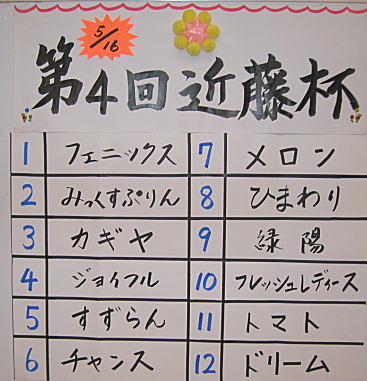 5/16
第4回近藤杯
1 フェニックス 7 メロン
2 みっくすぷりん 8 ひまわり
3 カギヤ 9 緑陽
4 ジョイフル 10 フレッシュレディース
5 すずらん 11 トマト
6 チャンス 12 ドリーム